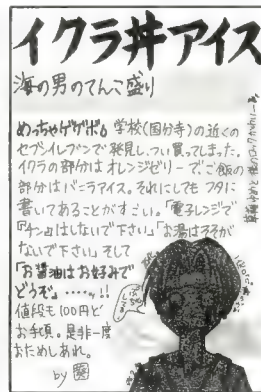 イクラ丼アイス
海の男のてんこ盛り
めっちゃゲゲボ。学校(国分寺)の近くの
セブンイレブンで発見し、つい買ってしまった。
イクラの部分はオレンジゼリーで、ご飯の
部分はバニラアイス。それにしてもフタに
書いてあることがすごい。「電子レンジで
『チン』はしないで下さい」「お湯はそそが
ないで下さい」そして
「お醤油はお好みで
どうぞ」……!!
値段も100円と
お手頃。是非一度
おためしあれ。
by